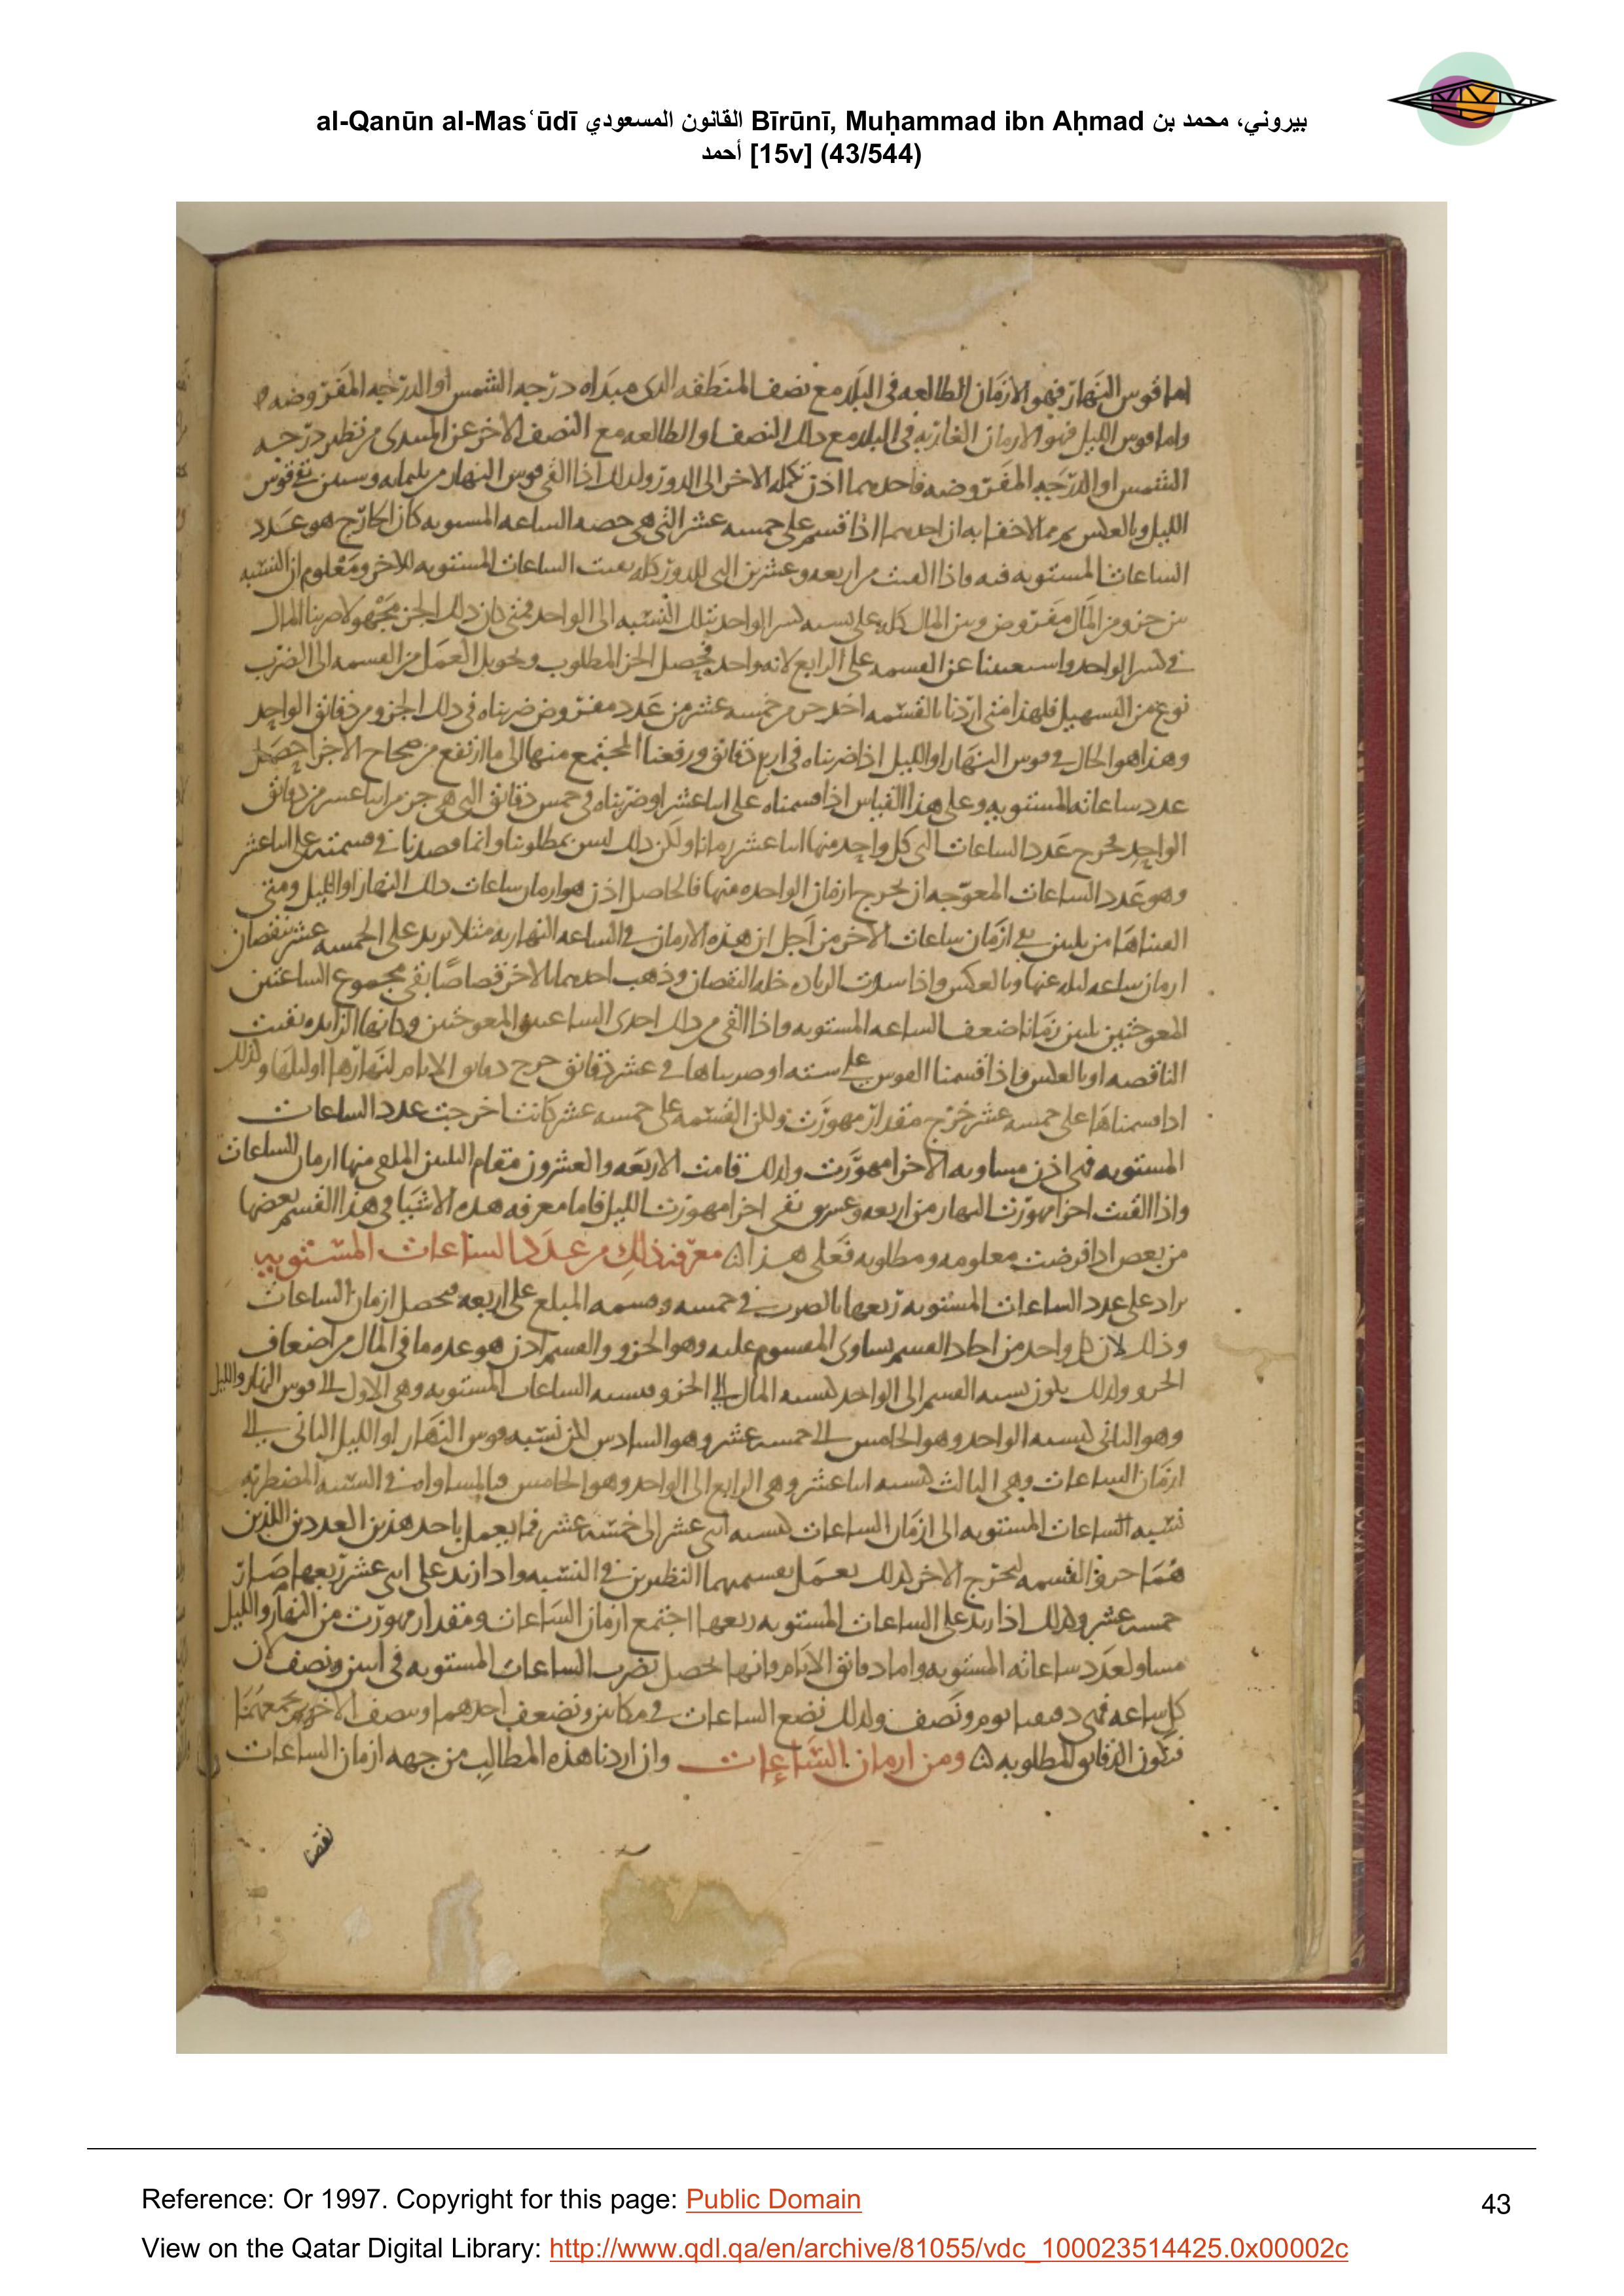 al-Qanūn al-Masʿūdī القانون المسعودي Bīrūnī, Muḥammad ibn Aḥmad بيروني، محمد بن
أحمد [15v] (43/544)
اما قوس النهار فهو الازمان الطالعه في البلد مع نصف المنطقه الذى مبداه درجه الشمس او الدرجه المفروضه
واما قوس الليل فهو الازمان الغاربه فى البلد مع ذلك النصف او الطالعه مع النصف الاخر عن المبتدى من نظير درجه
الشمس او الدرجه المفروضه فاحدهما اذن تكمله الاخر الى الدور ولذلك اذا القى قوس النهار من ثلثمايه وستين بقى قوس
الليل وبالعكس ثم مما لاخفا به ان احدهما اذا قسم على خمسه عشر التى هى حصه الساعه المستويه كان الخارج هو عدد
الساعات المستويه فيه واذا القيت من اربعه وعشرين التى للدور كله بقيت الساعات المستويه للاخر ومعلوم ان النسبه
بين جزو من المال مفروض وبين المال كله على نسبه كسر الواحد بتلك النسبه الى الواحد فمتى كان ذلك الجز مجهولا ضربنا المال
فى كسر الواحد واستغنينا عن القسمه على الرابع لانه واحد فيحصل الجز المطلوب وتحويل العمل من القسمه الى الضرب
نوع من التسهيل فلهذا متى اردنا بالقسمه اخذ جز من خمسه عشر من عدد مفروض ضربناه فى ذلك الجزو من دقائق الواحد
وهذا هو الحال فى قوس النهار او الليل اذا ضربناه فى اربع دقائق ورفعنا المجتمع منها الى ما ارتفع من صحاح الاجزا حصل
عدد ساعاته المستويه وعلى هذا القياس اذا قسمناه على اثنا عشر او ضربناه فى خمس دقائق التى هى جز من اثنا عشر من دقائق
الواحد يخرج عدد الساعات التى كل واحد منها اثنا عشر زمانا ولكن ذلك ليس بمطلوبنا وانما قصدنا فى قسمته على اثنا عشر
وهو عدد الساعات المعوجه ان يخرج ازمان الواحده منها فالحاصل اذن هو ازمان ساعات ذلك النهار او الليل ومتى
القيناها من ثلثين بقى ازمان ساعات الاخر من اجل ان هذه الازمان فى الساعه النهاريه مثلا تزيد على الخمسه عشر بنقصان
ازمان ساعه ليله عنها وبالعكس واذا سدت الزياده خله النقصان وذهب احدهما بالاخر قصاصا بقى مجموع الساعتين
المعوجتين ثلثين زمانا ضعف الساعه المستويه واذا القى من ذلك احدى الساعتين المعوجتين وكانها الزايده بقيت
الناقصه او بالعكس فاذا قسمنا القوس على سته او ضربناها فى عشر دقائق خرج دقائق الايام لنهارها او ليلها ولذلك
اذا قسمناها على خمسه عشر خرج مقدار مهورت ولكن القسمه على خمسه عشر كانت اخرجت عدد الساعات
المستويه فهى اذن مساويه لاجزا مهورت ولذلك قامت الاربعه والعشرون مقام الثلثين الملقى منها ازمان الساعات
واذا القيت اجزا مهورت النهار من اربعه وعشرين بقى اجزا مهورت الليل فاما معرفه هذه الاشيا فى هذا القسم بعضها
من بعض اذا فرضت معلومه ومطلوبه فعلى هذا ۵ معرفه ذلك من عدد الساعات المستويه
يزاد على عدد الساعات المستويه ربعها بالضرب فى خمسه وقسمه المبلغ على اربعه فيحصل ازمان الساعات
وذلك لان كل واحد من احاد القسم يساوى المقسوم عليه وهو الجزو والقسم اذن هو عده ما فى المال من اضعاف
الجزو ولذلك يكون نسبه القسم الى الواحد كنسبه المال الى الجزو فنسبه الساعات المستويه وهى الاول الى قوس النهار والليل
وهو الثانى كنسبه الواحد وهو الخامس الى خمسه عشر وهو السادس لكن نسبه قوس النهار او الليل الثانى الى
ازمان الساعات وهى الثالث كنسبه اثنا عشر وهى الرابع الى الواحد وهو الخامس فبالمساواه فى النسبه المضطربه
نسبه الساعات المستويه الى ازمان الساعات كنسبه اثنى عشر الى خمسه عشر فما يعمل باحد هذين العددين اللذين
هما جزوا القسمه ليخرج الاخر كذلك يعمل بقسميهما النظيرين فى النسبه واذا زيد على اثنى عشر ربعها صار
خمسه عشر وكذلك اذا زيد على الساعات المستويه ربعها اجتمع ازمان الساعات ومقدار مهورت من النهار والليل
مساو لعدد ساعاته المستويه واما دقائق الايام فانها تحصل بضرب الساعات المستويه فى اثنين ونصف لان
كل ساعه فهى دقيقتا يوم ونصف ولذلك نضع الساعات فى مكانين ونضعف احدهما وننصف الاخر ونجمعهما
فتكون الدقائق المطلوبه ۵ ومن ازمان الساعات وان اردنا هذه المطالب من جهه ازمان الساعات
نقصنا
Reference: Or 1997. Copyright for this page: Public Domain
43
View on the Qatar Digital Library: http://www.qdl.qa/en/archive/81055/vdc_100023514425.0x00002c